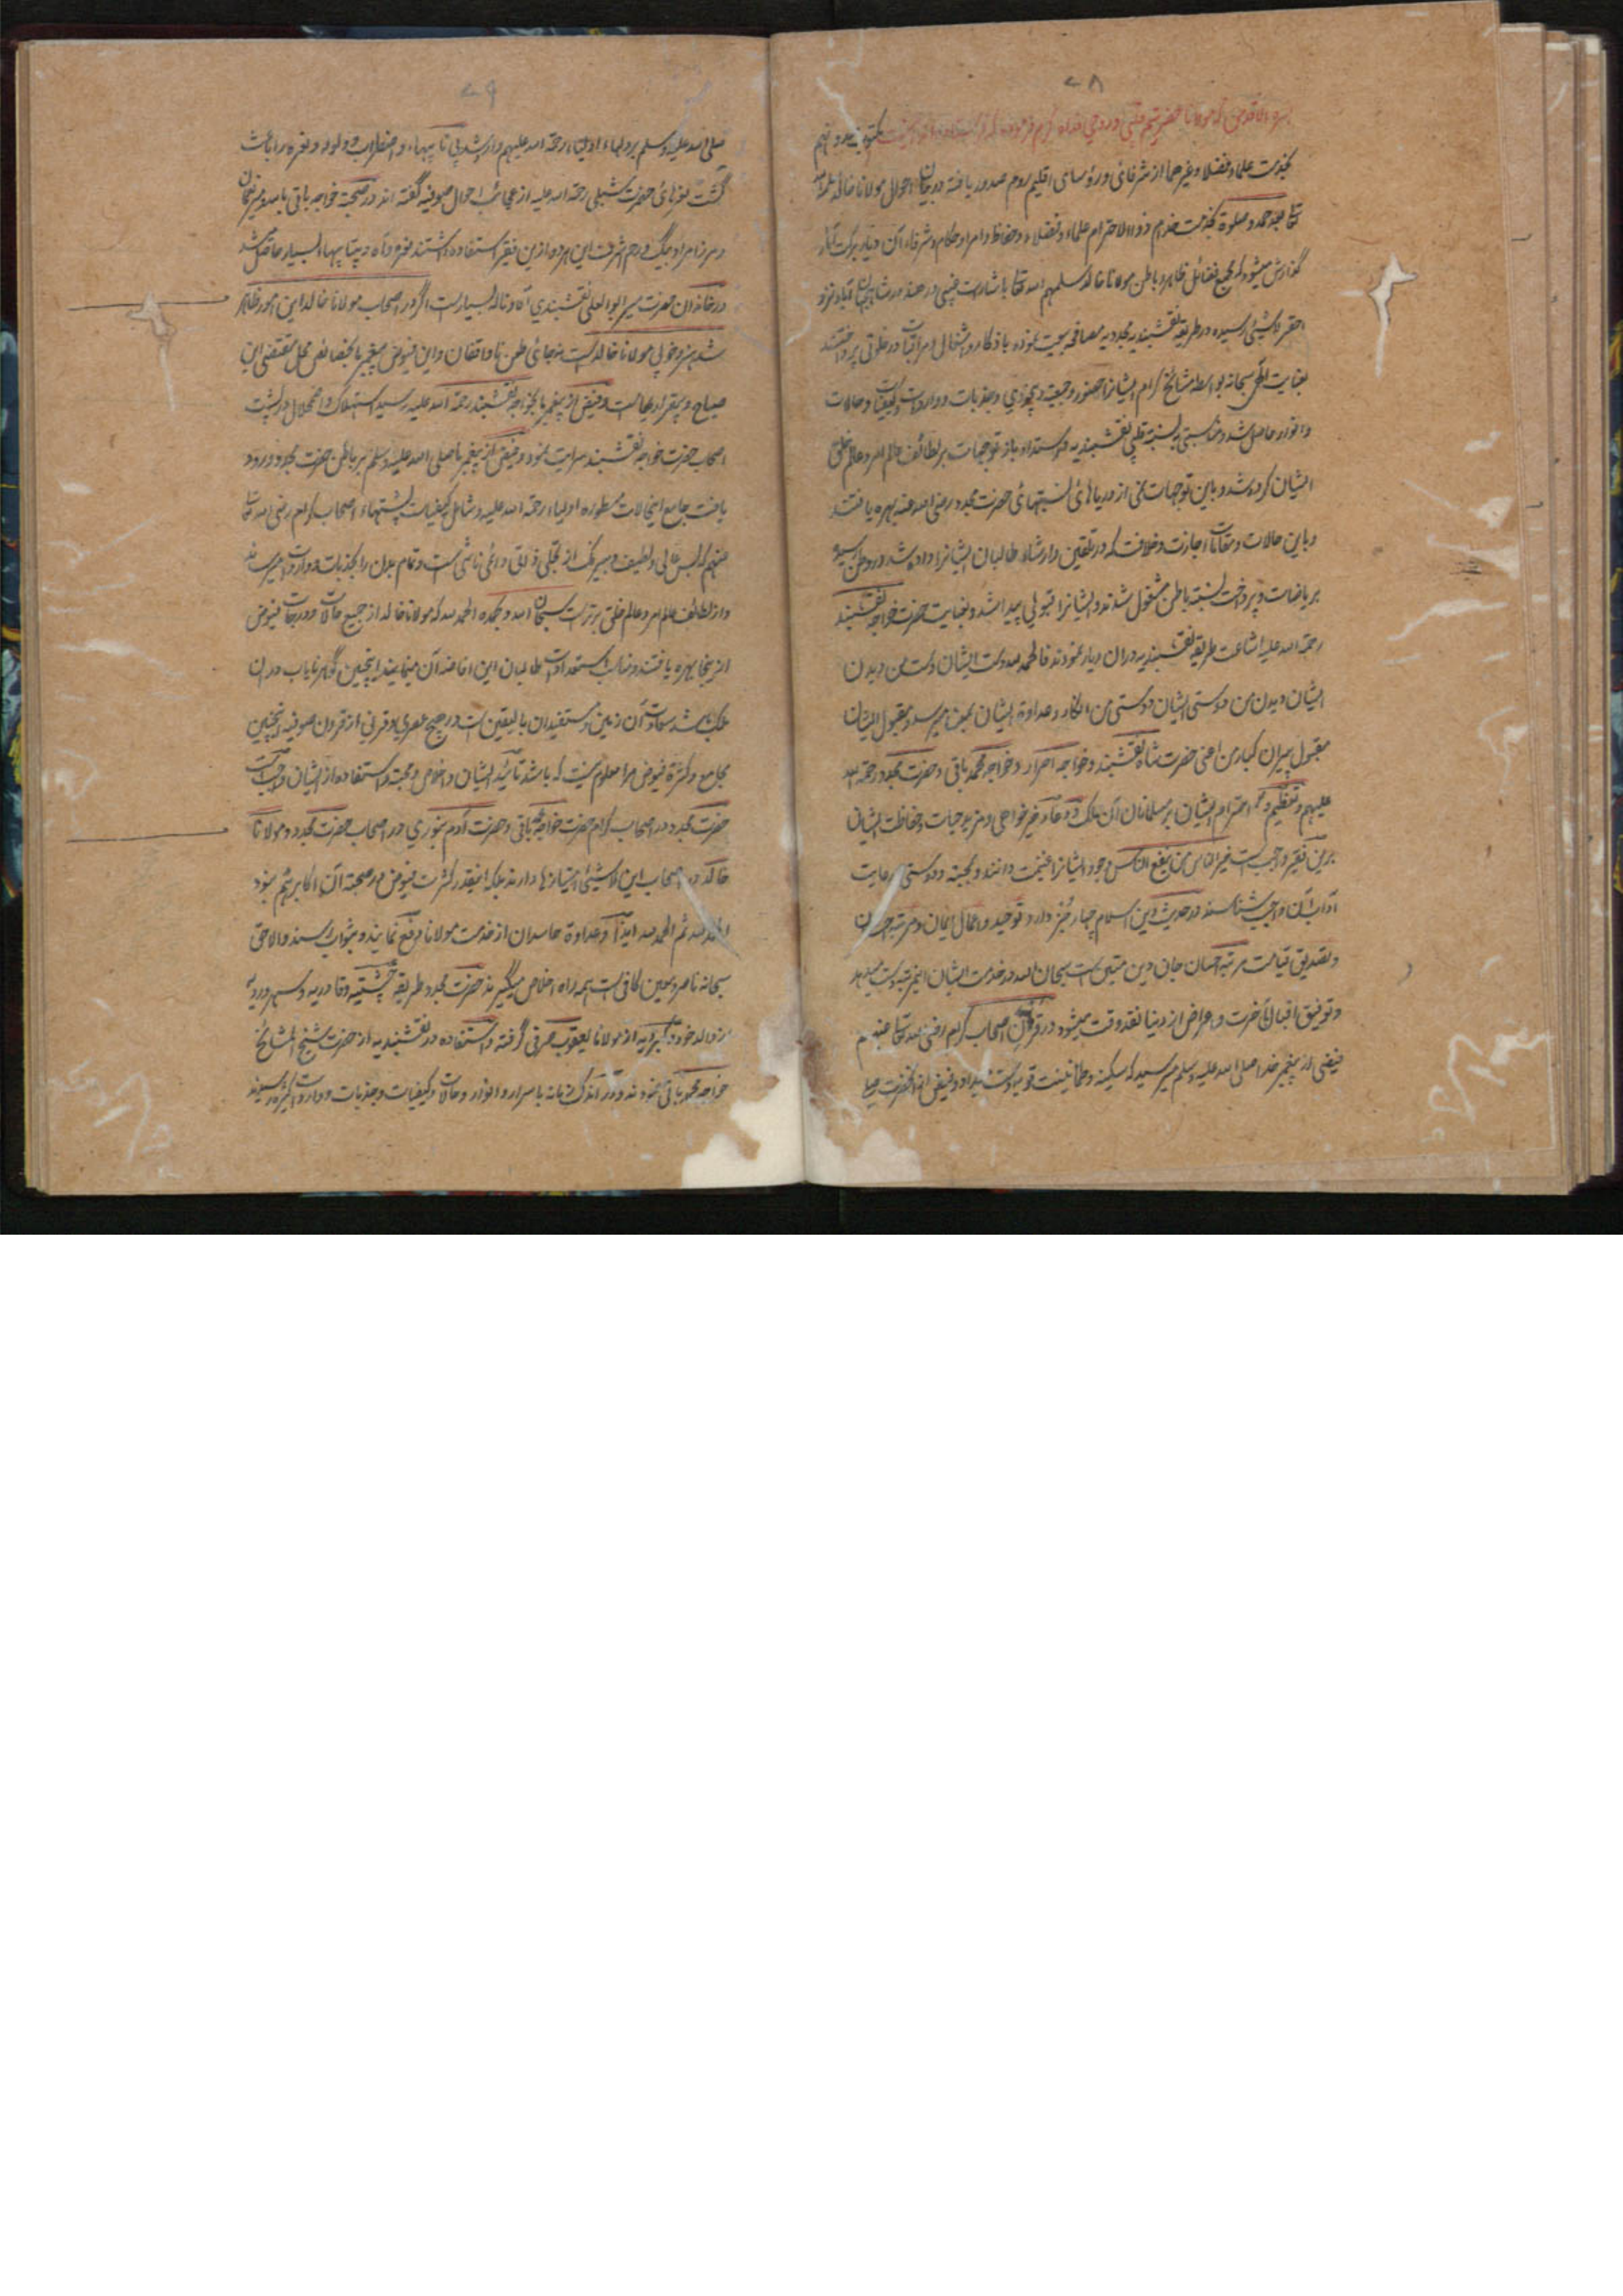 ۷۸
بخدمت علماء فضلا وغیرهما از شرفای ورؤسای اقلیم روم صدور یافته در بیان احوال مولانا خالد
بعد حمد وصلوة بخدمت ذوالاحترام علماء وفضلاء وحفاظ وامرا وحکام وشرفاء آن دیار برکت آثار
گذارش میشود که مجمع فضائل ظاهر وباطن مولانا خالد سلمهم الله تعالی باشارت غیبی در هند در شاه جهان آباد نزد
احقر لاشیٔ رسیده در طریقه نقشبندیه مجددیه مصافحه بیعت نموده باذکار واشغال ومراقبات در خلوتی پرداختند
بعنایت الهی سبحانه بواسطه مشائخ کرام ایشانرا حضور وجمعیت وبیخودی وجذبات وواردات وکیفیات وحالات
وانوار حاصل شد ومناسبتی به نسبت قلبی نقشبندیه باز توجهات بر لطائف عالم امر وعالم خلق
ایشان کرده شد وباین توجهات نمی از دریاهای نسبتهای حضرت مجدد رضی الله عنه بهره یافتند
وباین حالات ومقامات اجازت وخلافت که در تلقین وارشاد طالبان ایشانرا داده شد در وطن رسیده
بریاضات وپرداخت نسبت باطن مشغول شدند وایشانرا قبولی پیدا شد وبعنایت حضرت خواجه نقشبند
رحمة الله علیه اشاعت طریقه نقشبندیه دران دیار نمودند فالحمد لله دست ایشان دست من دیدن
ایشان دیدن من دوستی ایشان دوستی من انکار وعداوة ایشان بمن میرسد ومقبول ایشان
مقبول پیران کبار من اعنی حضرت شاه نقشبند وخواجه احرار وخواجه محمد باقی وحضرت مجدد رحمة الله
علیهم وتعظیم واحترام ایشان بر مسلمانان آن ملک ودعاء خیرخواهی ومزید حیات وحفاظت ایشان
برین فقیر واجب است خیر الناس من ینفع الناس وجود ایشانرا غنیمت دانند وبمحبته ودوستی رعایت
آداب آن واجب شناسند در حدیث دین اسلام چهار چیز دارد توحید واعمال ایمان ومرتبه احسان
وتصدیق قیامت مرتبه احسان جان دین متین است سبحان الله در خدمت ایشان این مرتبه دست میدهد
وتوفیق اقبال آخرت واعراض از دنیا نقد وقت میشود در قرن اصحاب کرام رضی الله تعالی عنهم
فیضی از پیغمبر خدا صلی الله علیه وسلم میرسید که سکینه وطمانینت قویه دست میداد وفیض آنحضرت صلی
۷۹
صلی الله علیه وسلم بر دلهاء اولیاء رحمة الله علیهم وارد شد بی تابیها، واضطراب وولوله ونعره را باعث
گشت نعره‌های حضرت شبلی رحمة الله علیه از عجائب احوال صوفیه گفته اند در صحبة خواجه باقی بالله
ومرزا مراد بیگ این هر دو ازین فقیر استفاده داشتند نعره وآه وبیتابیها بسیار حاصل شد
در خاندان حضرت میر ابو العلی نقشبندی آه وناله بسیارست اگر در اصحاب مولانا خالد این امور ظاهر
شد هنر وخوبی مولانا خالدست نه جای طعن ناواقفان واین فیوض پیغمبر
صیاح وبیقراریهاست وفیض از پیغمبر بخواجه نقشبند رحمة الله علیه رسید استهلاک واضمحلال
اصحاب حضرت خواجه نقشبند سرایت نمود وفیض که از پیغمبر صلی الله علیه وسلم بر باطن حضرت مجدد ورود
یافت جامع این حالات مسطوره اولیاء رحمة الله علیه وشامل کیفیات نسبتهاء اصحاب کرام رضی الله تعالی
عنهم که بس عالی ولطیف وبیرنگ از تجلی ذاتی دائمی ناشی است وتمام بدن را بجذبات وواردات میرسد
واز لطائف عالم امر وعالم خلق برترست سبحان الله وبحمده الحمد لله که مولانا خالد از جمیع حالات ودرجات فیوض
ازینجا بهره یافتند ومناسب استعدادات طالبان این افاضه آن مینمایند اینچنین گوهر نایاب دران
ملک باشد سعادت آن زمین ومستفیدان بالیقین است در هیچ عصری وقرنی از قرون صوفیه اینچنین
مجامع وکثرة فیوض مرا معلوم نیست که باشد تائید ایشان واخلاص ومحبة واستفاده از ایشان واجب است
حضرت مجدد در اصحاب کرام حضرت خواجه محمد باقی وحضرت آدم بنوری در اصحاب حضرت مجدد ومولانا
خالد در اصحاب این لاشیٔ امتیازها دارند بلکه اینقدر کثرت فیوض در صحبة آن اکابر هم نبود
الحمد لله ثم الحمد لله ایذا وعداوة حاسدان از خدمت مولانا رفع نمایند وبثواب رسند والا حق
سبحانه ناصر ومعین کافی است همه راه اخلاص میگیرند حضرت مجدد طریقه چشتیه وقادریه وسهروردیه
از والد خود وکبرویه از مولانا یعقوب صرفی گرفته واستفاده در نقشبندیه از حضرت شیخ المشائخ
خواجه محمد باقی نمودند ودر اندک زمانه باسرار وانوار وحالات وکیفیات وجذبات وواردات کثیره رسیدند